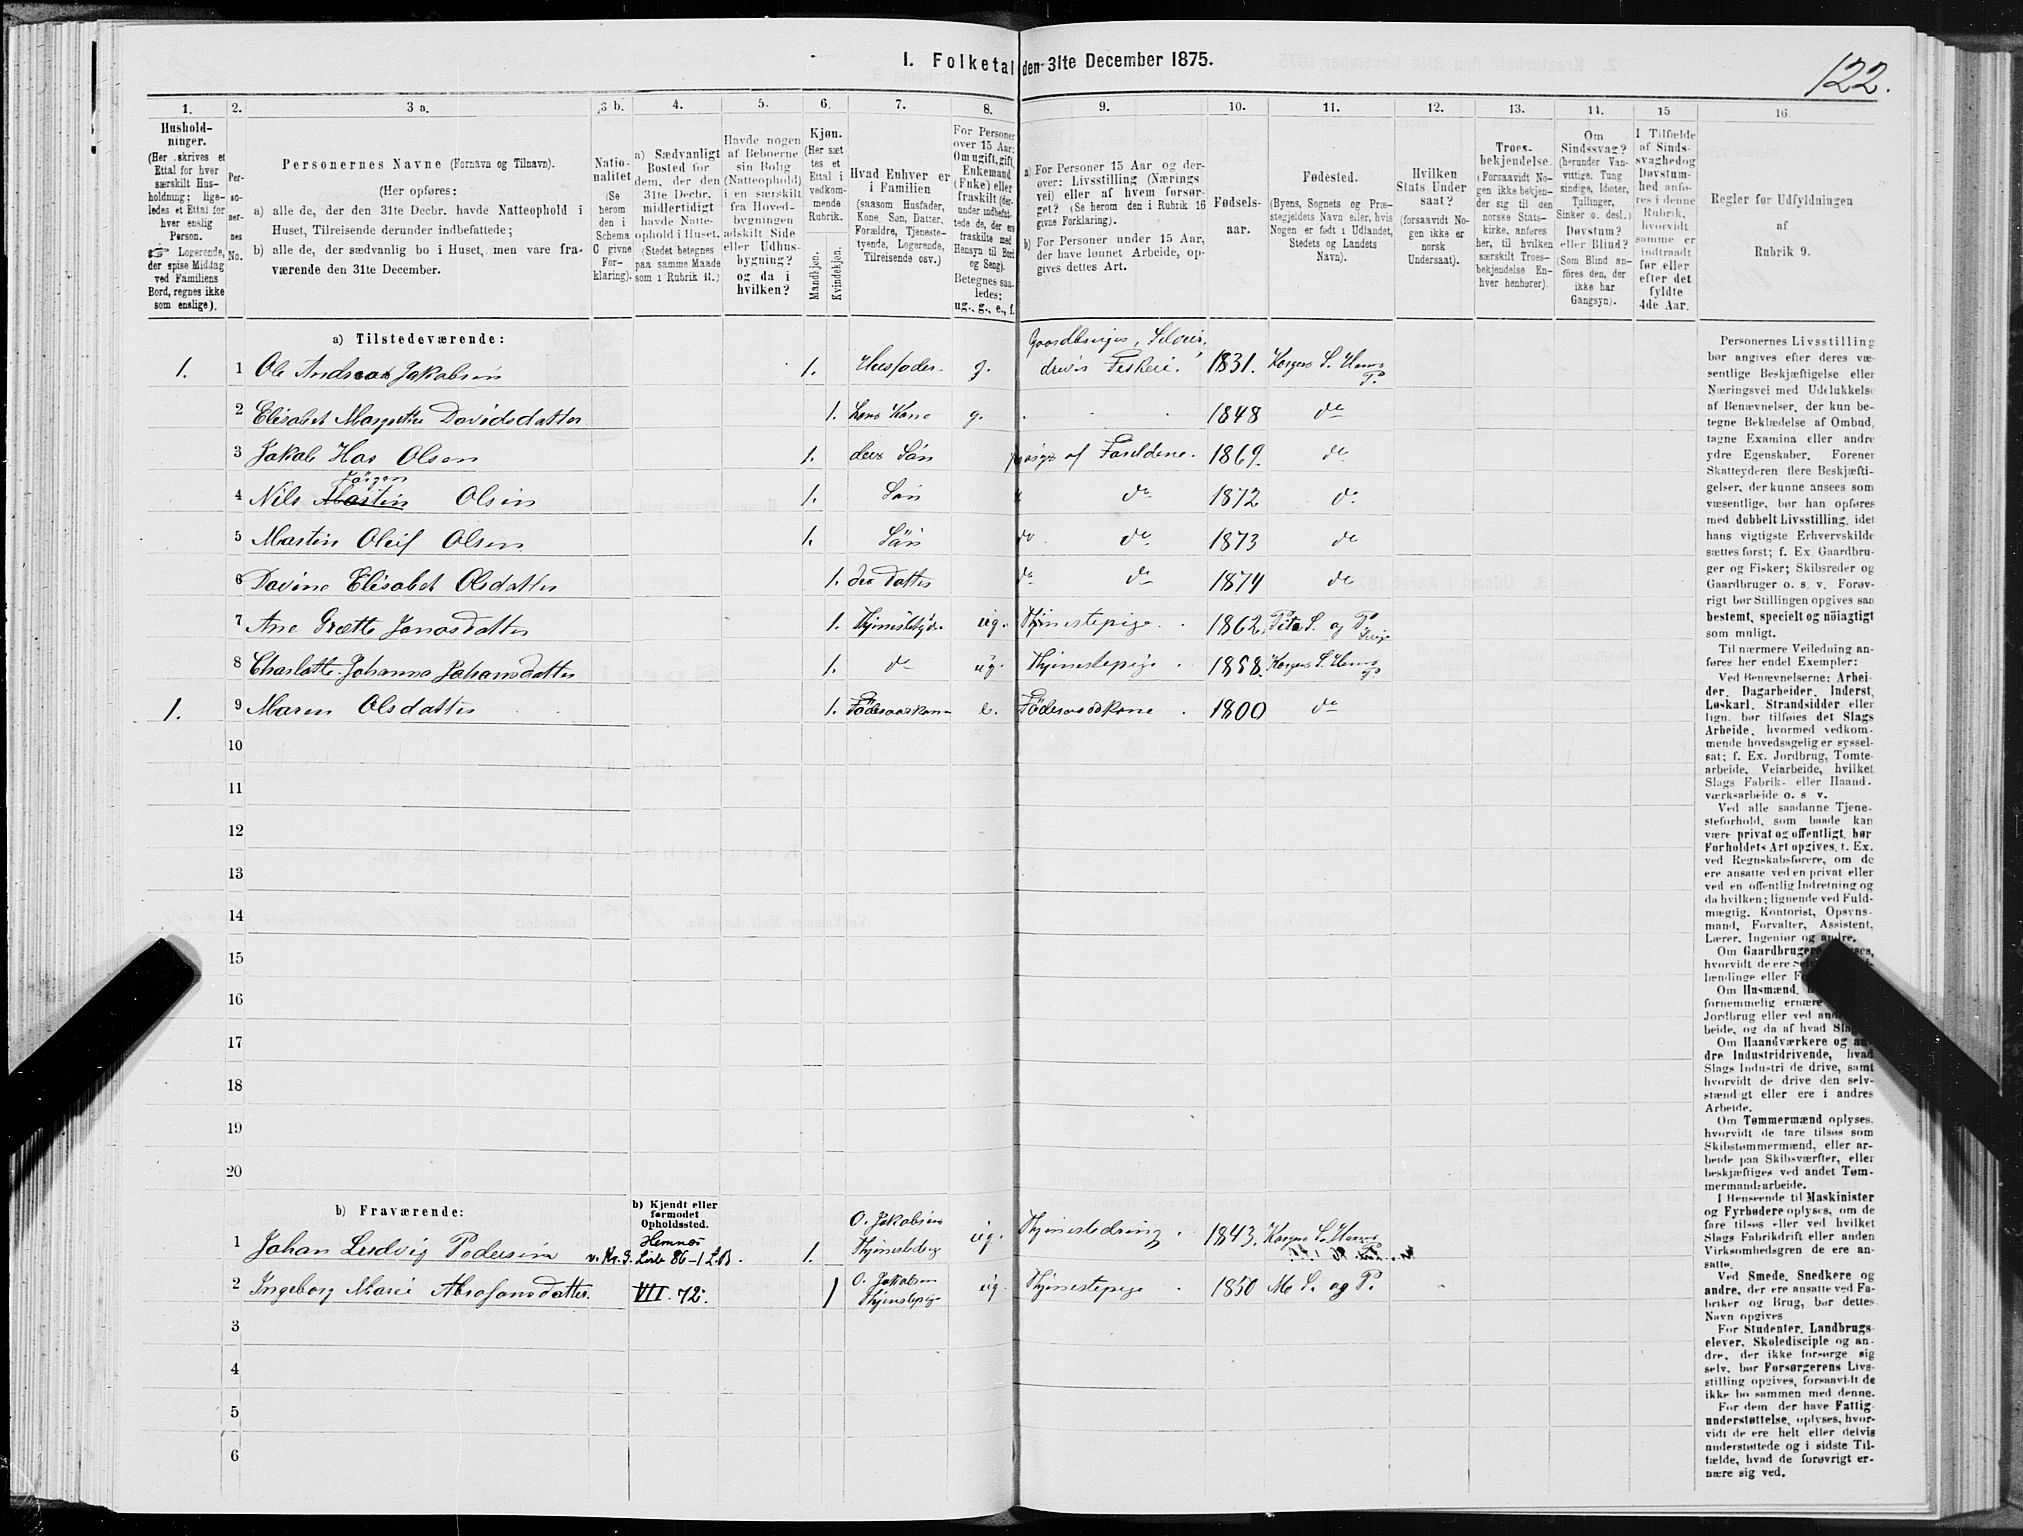 122.
1. Folketal den 31te December 1875.
1. 2. 3 a. 3 b. 4. 5. 6. 7. 8. 9. 10. 11. 12. 13. 14. 15 16.
Hushold-
ninger.
(Her skrives et
Ettal for hver
særskilt Hus-
holdning; lige-
ledes et Ettal for
hver enslig
Person.
☞ Logerende,
der spise Middag
ved Familiens
Bord, regnes ikke
som enslige).
Per-
so-
ner-
nes
No.
Personernes Navne (Fornavn og Tilnavn).
(Her opføres:
a) alle de, der den 31te Decbr. havde Natteophold i
Huset, Tilreisende derunder indbefattede;
b) alle de, der sædvanlig bo i Huset, men vare fra-
værende den 31te December.
Natio-
nalitet
(Se
herom
den i
Schema
C givne
For-
klaring).
a) Sædvanligt
Bosted for
dem, der den
31te Decbr.
midlertidigt
havde Natte-
ophold i Huset.
(Stedet betegnes
paa samme Maade
som i Rubrik 11.)
Havde nogen
af Beboerne
sin Bolig
(Natteophold)
i en særskilt
fra Hoved-
bygningen
adskilt Side
eller Udhus-
bygning?
og da i
hvilken?
Kjøn.
(Her sæt
tes et
Ettal i
vedkom-
mende
Rubrik.
Mandkjøn.
Kvindekjøn.
Hvad Enhver er
i Familien
(saasom Husfader,
Kone, Søn, Datter,
Forældre, Tjeneste-
tyende, Logerende,
Tilreisende osv.)
For Personer
over 15 Aar:
Om ugift, gift,
Enkemand
(Enke) eller
fraskilt (der-
under indbefat-
tede de, der ere
fraskilte med
Hensyn til Bord
og Seng).
Betegnes saa-
ledes:
ug., g., e., f.
a) For Personer 15 Aar og der-
over: Livsstilling (Nærings
vei) eller af hvem forsør-
get? (Se herom den i Rubrik 16
givne Forklaring).
b) For Personer under 15 Aar,
der have lønnet Arbeide, op-
gives dettes Art.
Fødsels-
aar.
Fødested.
(Byens, Sognets og Præ-
stegjeldets Navn eller, hvis
Nogen er født i Udlandet,
Stedets og Landets
Navn).
Hvilken
Stats Under
saat?
(forsaavidt No-
gen ikke er
norsk
Undersaat).
Troes-
bekjendelse.
(Forsaavidt No-
gen ikke bekjen-
der sig til den
norske Stats-
kirke, anføres
her, til hvilken
særskilt Troes-
bekjendelse En-
hver henhører).
Om
Sindssvag?
(herunder Van-
vittige, Tung
sindige, Idioter,
Tullinger,
Sinker o. desl.)
Døvstum?
eller Blind?
(Som Blind an-
føres den, der
ikke har
Gangsyn).
I Tilfælde
af Sinds-
svaghed og
Døvstum-
hed anfø-
res i denne
Rubrik,
hvorvidt
samme er
indtraadt
før eller
efter det
fyldte
4de Aar.
Regler for Udfyldningen
af
Rubrik 9.
a) Tilstedeværende:
1. 1 Ole Andreas Jakobsen 1. Husfader g. Gaardbruger, Selveier, drivr Fiskeri. 1831. Korgens S. Hemnæs P.
2 Elisabet Margrethe Davidsdatter 1. hans Kone g. 1848 do
3 Jakob Has Olsen 1. deres Søn forsørges af Forældene. 1869. do
4 Nils Martin Jørgen Olsen 1. Søn do 1872 do
5 Martin Oleif Olsen 1. Søn do do 1873 do
6 Davine Elisabet Olsdatter 1. der Datter do do 1874 do
7 Ane Grætte Jonasdatter 1. ug. Thjenestepige. 1862. Pite S. og P.
8 Charlotte Johanna Johansdatter 1. do ug. Thjenestepige. 1858. Korgens S. Hemnæs P
1. 9 Maren Olsdatter 1. Føderaadskone e. Føderaadskone. 1800 do
10
11
12
13
14
15
16
17
18
19
20
b) Fraværende:
b) Kjendt eller
formodet
Opholdssted.
1 Johan Ludvig Pedersen Hemnæs v. Kr. 3. Liste 86-1 L.B. 1. O. Jakobsens ug. Thjenestedreng. 1843. Korgens S. Hemnæs
2 Ingeborg Marie Abrahamsdatter. VII. 72. 1 O. Jakobsen Thjenstepige ug. Thjenestepige. 1850 M S. og P.
3
4
5
6
Personernes Livsstilling
bør angives efter deres væ-
sentlige Beskjæftigelse eller
Næringsvei med Udelukkelse
af Benævnelser, der kun be-
tegne Beklædelse af Ombud,
tagne Examina eller andre
ydre Egenskaber. Forener
Skatteyderen flere Beskjæfti-
gelser, der kunne ansees som
væsentlige, bør han opføres
med dobbelt Livsstilling, idet
hans vigtigste Erhvervskilde
sættes først; f. Ex Gaardbru-
ger og Fisker; Skibsreder og
Gaardbruger o. s. v. Forøv-
rigt bør Stillingen opgives saa
bestemt, specielt og nöiagtigt
som muligt.
Til nærmere Veiledning an-
føres her endel Exempler:
Ved Benævnelserne: Arbei-
der, Dagarbeider, Inderst,
Løskarl, Strandsidder eller
lign. bør tilføies det Slags
Arbeide, hvormed vedkom-
mende hovedsagelig er syssel-
sat; f. Ex. Jordbrug, Tomte-
arbeide, Veiarbeide, hvilket
Slags Fabrik- eller Haand-
værksarbeide o. s v.
Ved alle saadanne Tjene-
steforhold, som baade kan
være privat og offentligt, bør
Forholdets Art opgives, t. Ex.
ved Regnskabsførere, om de
ere ansatte ved en privat eller
ved en offentlig Indretning og
da hvilken; lignende ved Fuld-
mægtig, Kontorist, Opsyns-
mand, Forvalter, Assistent,
Lærer, Ingeniør og andre.
Om Gaardbrugere
hvorvidt de ere
lændinge eller
Om Husmænd,
fornemmelig ernære
Jordbrug eller ved
beide, og da af hvad
Om Haandværkere og
dre Industridrivende, hvad
Slags Industri de drive, samt
hvorvidt de drive den selv-
stændigt eller ere i andres
Arbeide.
Om Tømmermænd oplyses,
hvorvidt de fare tilsøs som
Skibstømmermænd, eller ar-
beide paa Skibsværfter, eller
beskjæftiges ved andet Tøm-
mermandsarbeide.
I Henseende til Maskinister
og Fyrbødere oplyses, om de
fare tilsøs eller ved hvilket
Slags Fabrikdrift eller anden
Virksomhedsgren de ere an-
satte.
Ved Smede, Snedkere og
andre, der ere ansatte ved Fa-
briker og Brug, bør dettes
Navn opgives
For Studenter, Landbrugs-
elever, Skoledisciple og an-
dre, der ikke forsørge sig
selv, bør Forsørgerens Livs-
stilling opgives, forsaavidt de
ikke bo sammen med denne.
For dem der have Fattig-
understøttelse, oplyses, hvor-
vidt de ere helt eller delvis
understøttede og i sidste Til-
fælde, hvad de forøvrigt er-
nære sig ved.